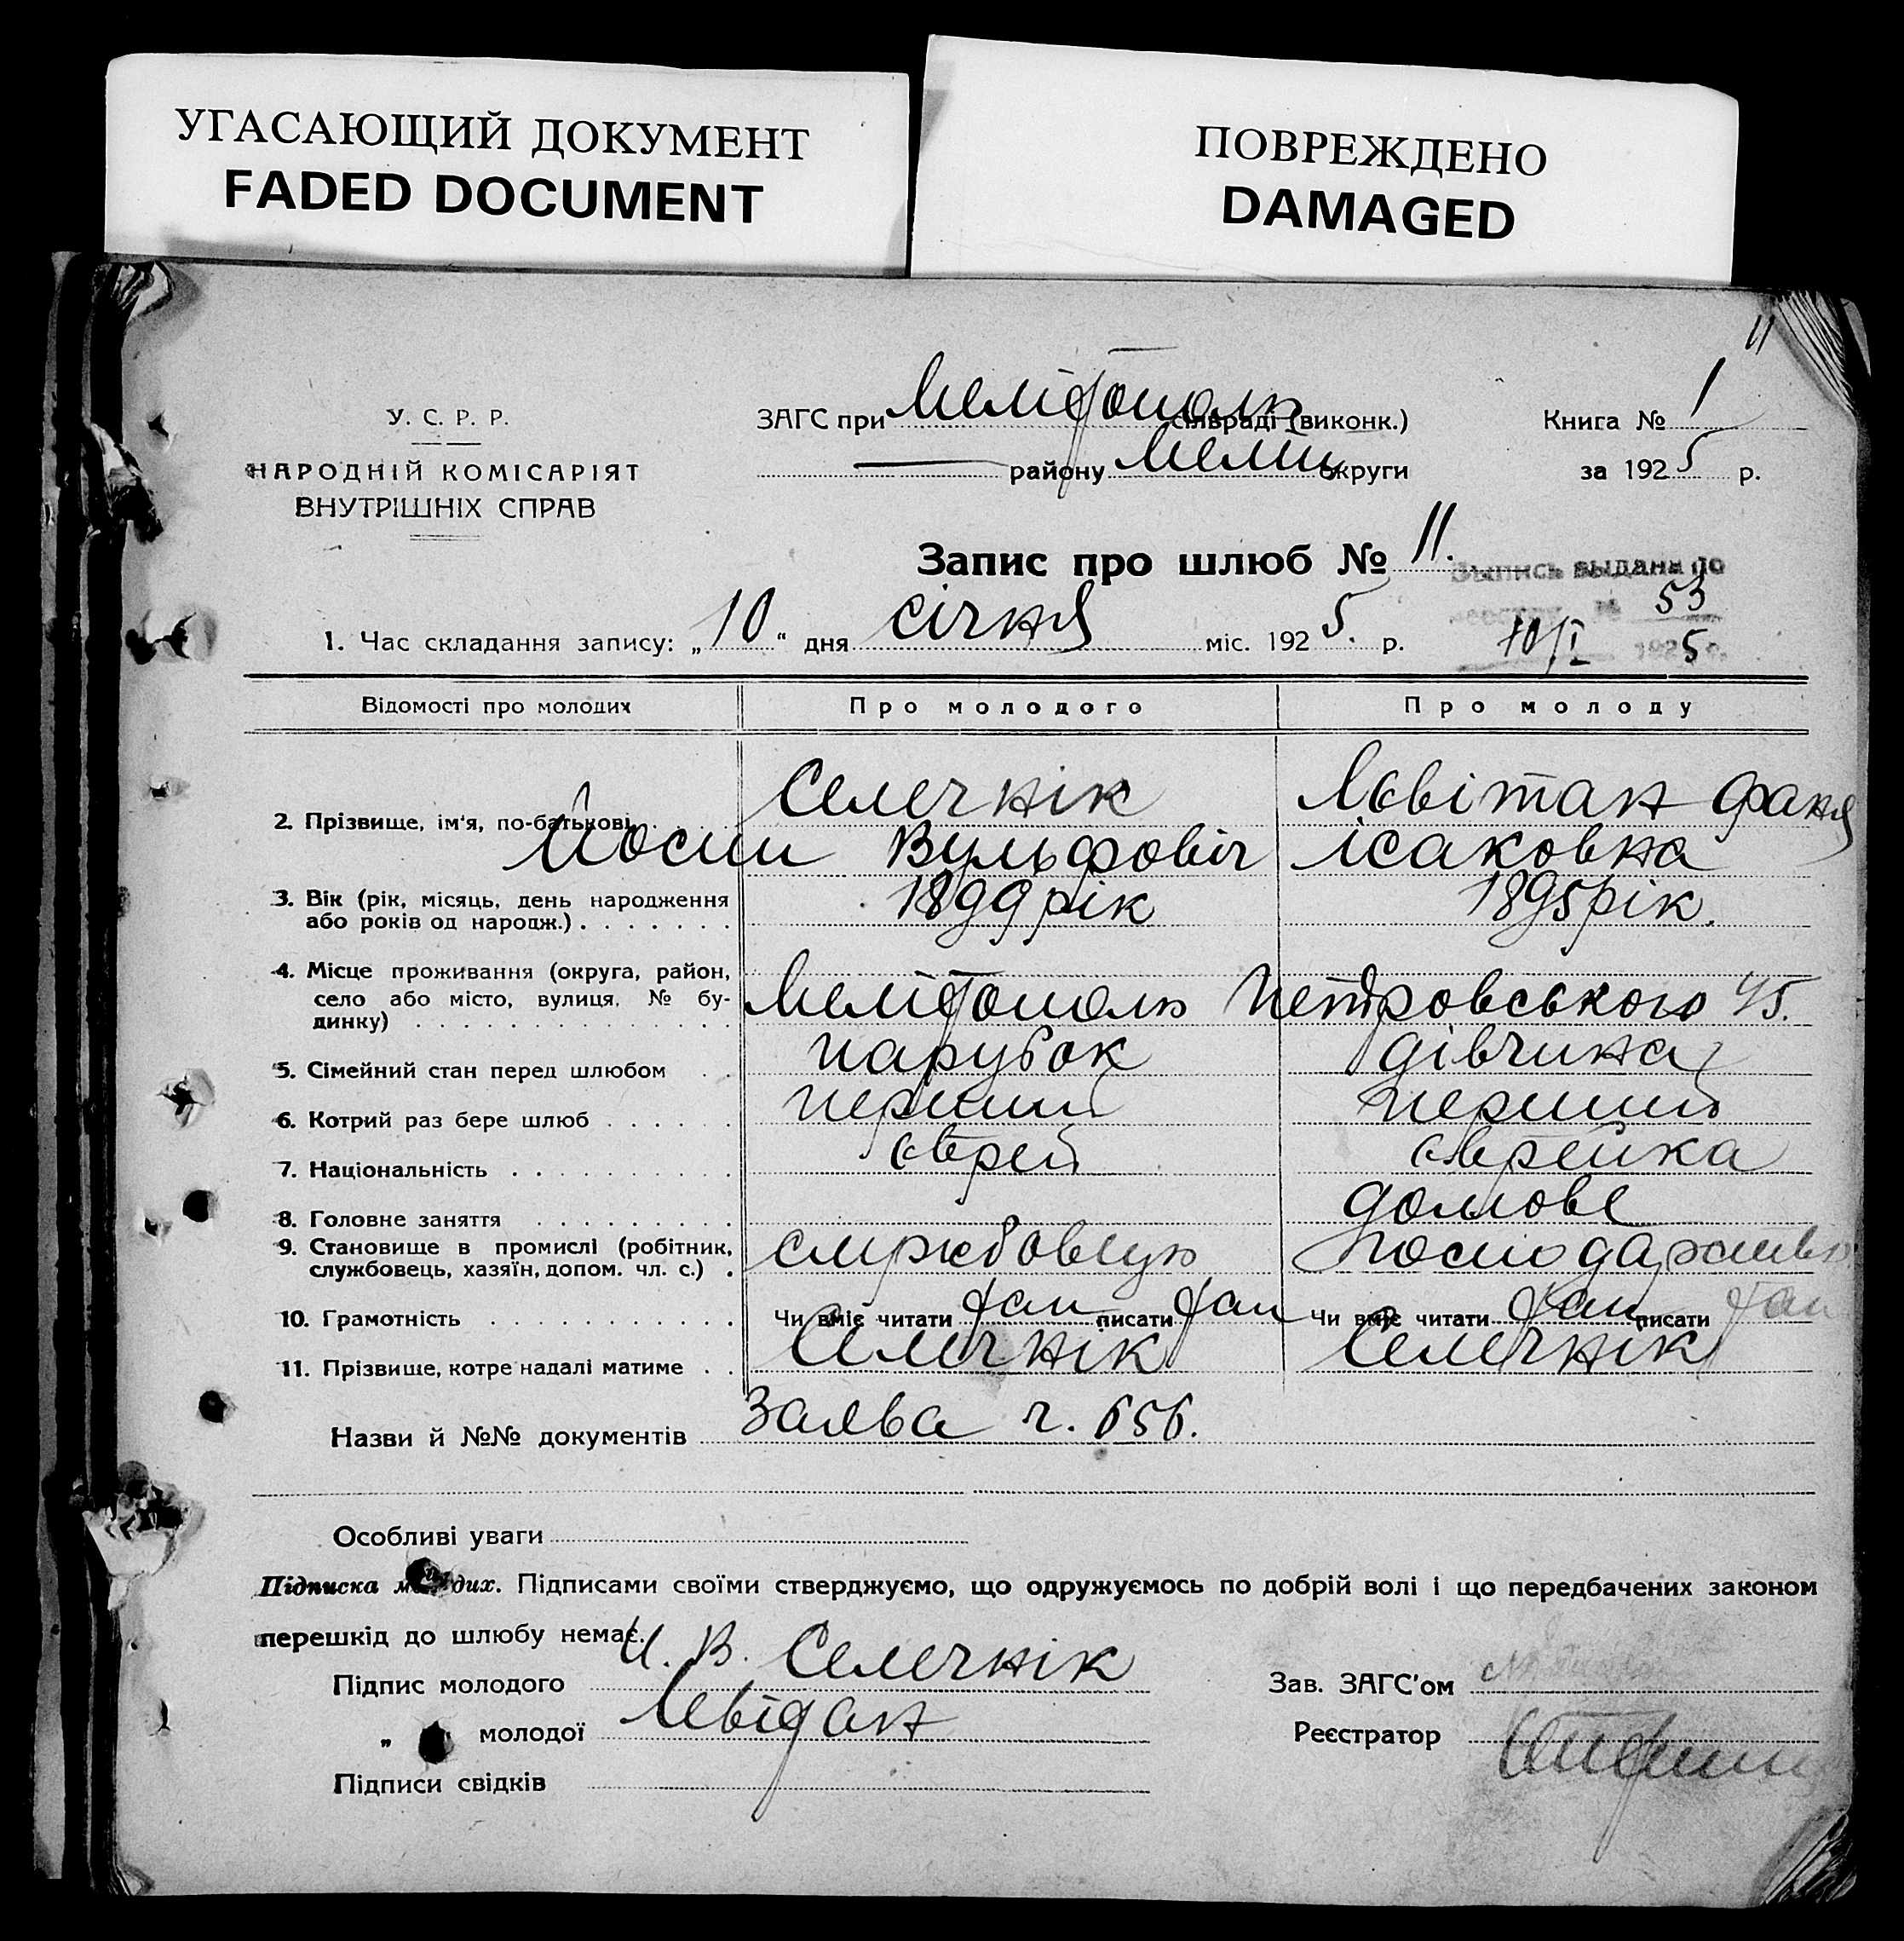 УГАСАЮЩИЙ ДОКУМЕНТ
FADED DOCUMENT
ПОВРЕЖДЕНО
DAMAGED
11
У. С. Р. Р.
НАРОДНІЙ КОМІСАРІЯТ
ВНУТРІШНІХ СПРАВ
ЗАГС при Мелітополь сільраді (виконк.)
району Мелит округи
Книга № 1
за 1925 р.
Запис про шлюб № 11.
Выпись выдана по
реестру № 53
10/I 1925 г.
1. Час складання запису: „10" дня січня міс. 1925. р.
Відомості про молодих
Про молодого
Про молоду
2. Прізвище, ім'я, по-батькові
Селечнік
Йосип Вульфовіч
Лєвітан Фаня
Ісаковна
3. Вік (рік, місяць, день народження
або років од народж.)
1899 рік
1895 рік.
4. Місце проживання (округа, район,
село або місто, вулиця, № бу-
динку)
Мелітополь Петровського 45.
5. Сімейний стан перед шлюбом
парубок
дівчина
6. Котрий раз бере шлюб
перший
перший
7. Національність
єврей
єврейка
8. Головне заняття
домове
9. Становище в промислі (робітник,
службовець, хазяїн, допом. чл. с.)
службовець
господарство
10. Грамотність
Чи вміє читати так писати так
Чи вміє читати так писати так
11. Прізвище, котре надалі матиме
Селечнік
Селечнік
Назви й №№ документів Заява ч. 656.
Особливі уваги
Підписка молодих. Підписами своїми стверджуємо, що одружуємось по добрій волі і що передбачених законом
перешкід до шлюбу немає.
Підпис молодого И. В. Селечнік
„ молодої Левідан
Підписи свідків
Зав. ЗАГС'ом
Реєстратор